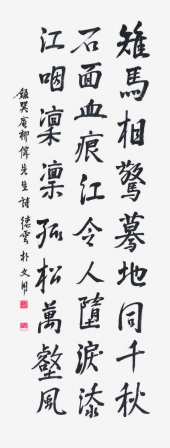 雉馬相驚驀地同千秋
石面血痕江令人隨淚漆
江咽凜凜孤松萬壑風
錄巽庵柳僖先生詩 德雲朴文用